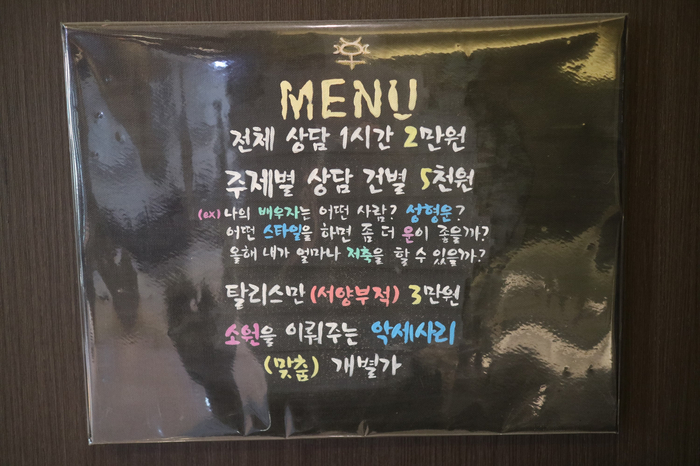 MENU
전체 상담 1시간 2만원
주제별 상담 건별 5천원
(ex) 나의 배우자는 어떤 사람? 성형운?
어떤 스타일을 하면 좀 더 운이 좋을까?
올해 내가 얼마나 저축을 할 수 있을까?
탈리스만 (서양부적) 3만원
소원을 이뤄주는 악세사리
(맞춤) 개별가